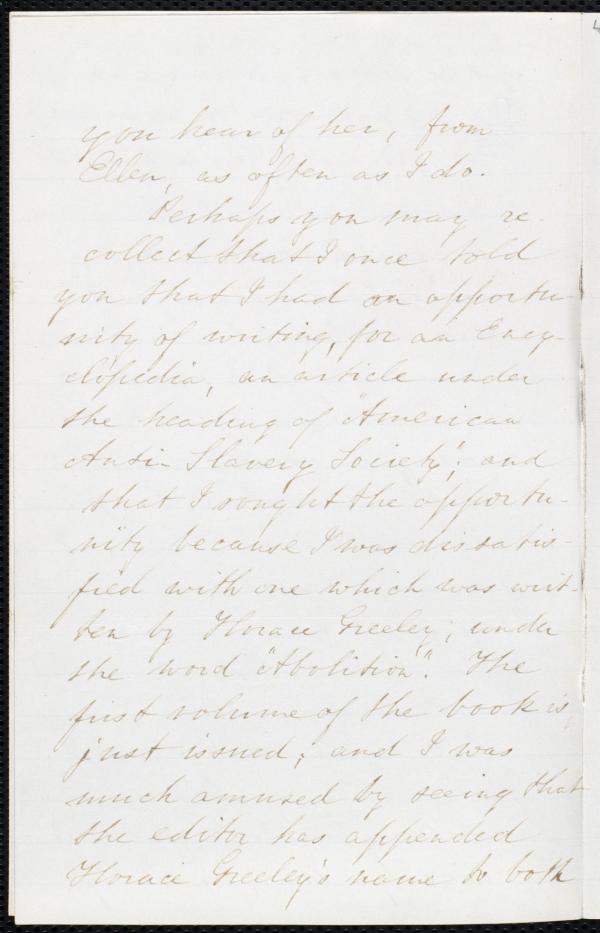 you hear of her, from
Ellen, as often as I do.
Perhaps you may re-
collect that I once told
you that I had an opportu-
nity of writing, for an Ency-
clopedia, an article under
the heading of "American
Anti-Slavery Society"; and
that I sought the opportu-
nity because I was dissatis-
fied with one which was writ-
ten by Horace Greeley, under
the word "Abolition". The
first volume of the book is
just issued; and I was
much amused by seeing that
the editor has appended
Horace Greeley's name to both
4